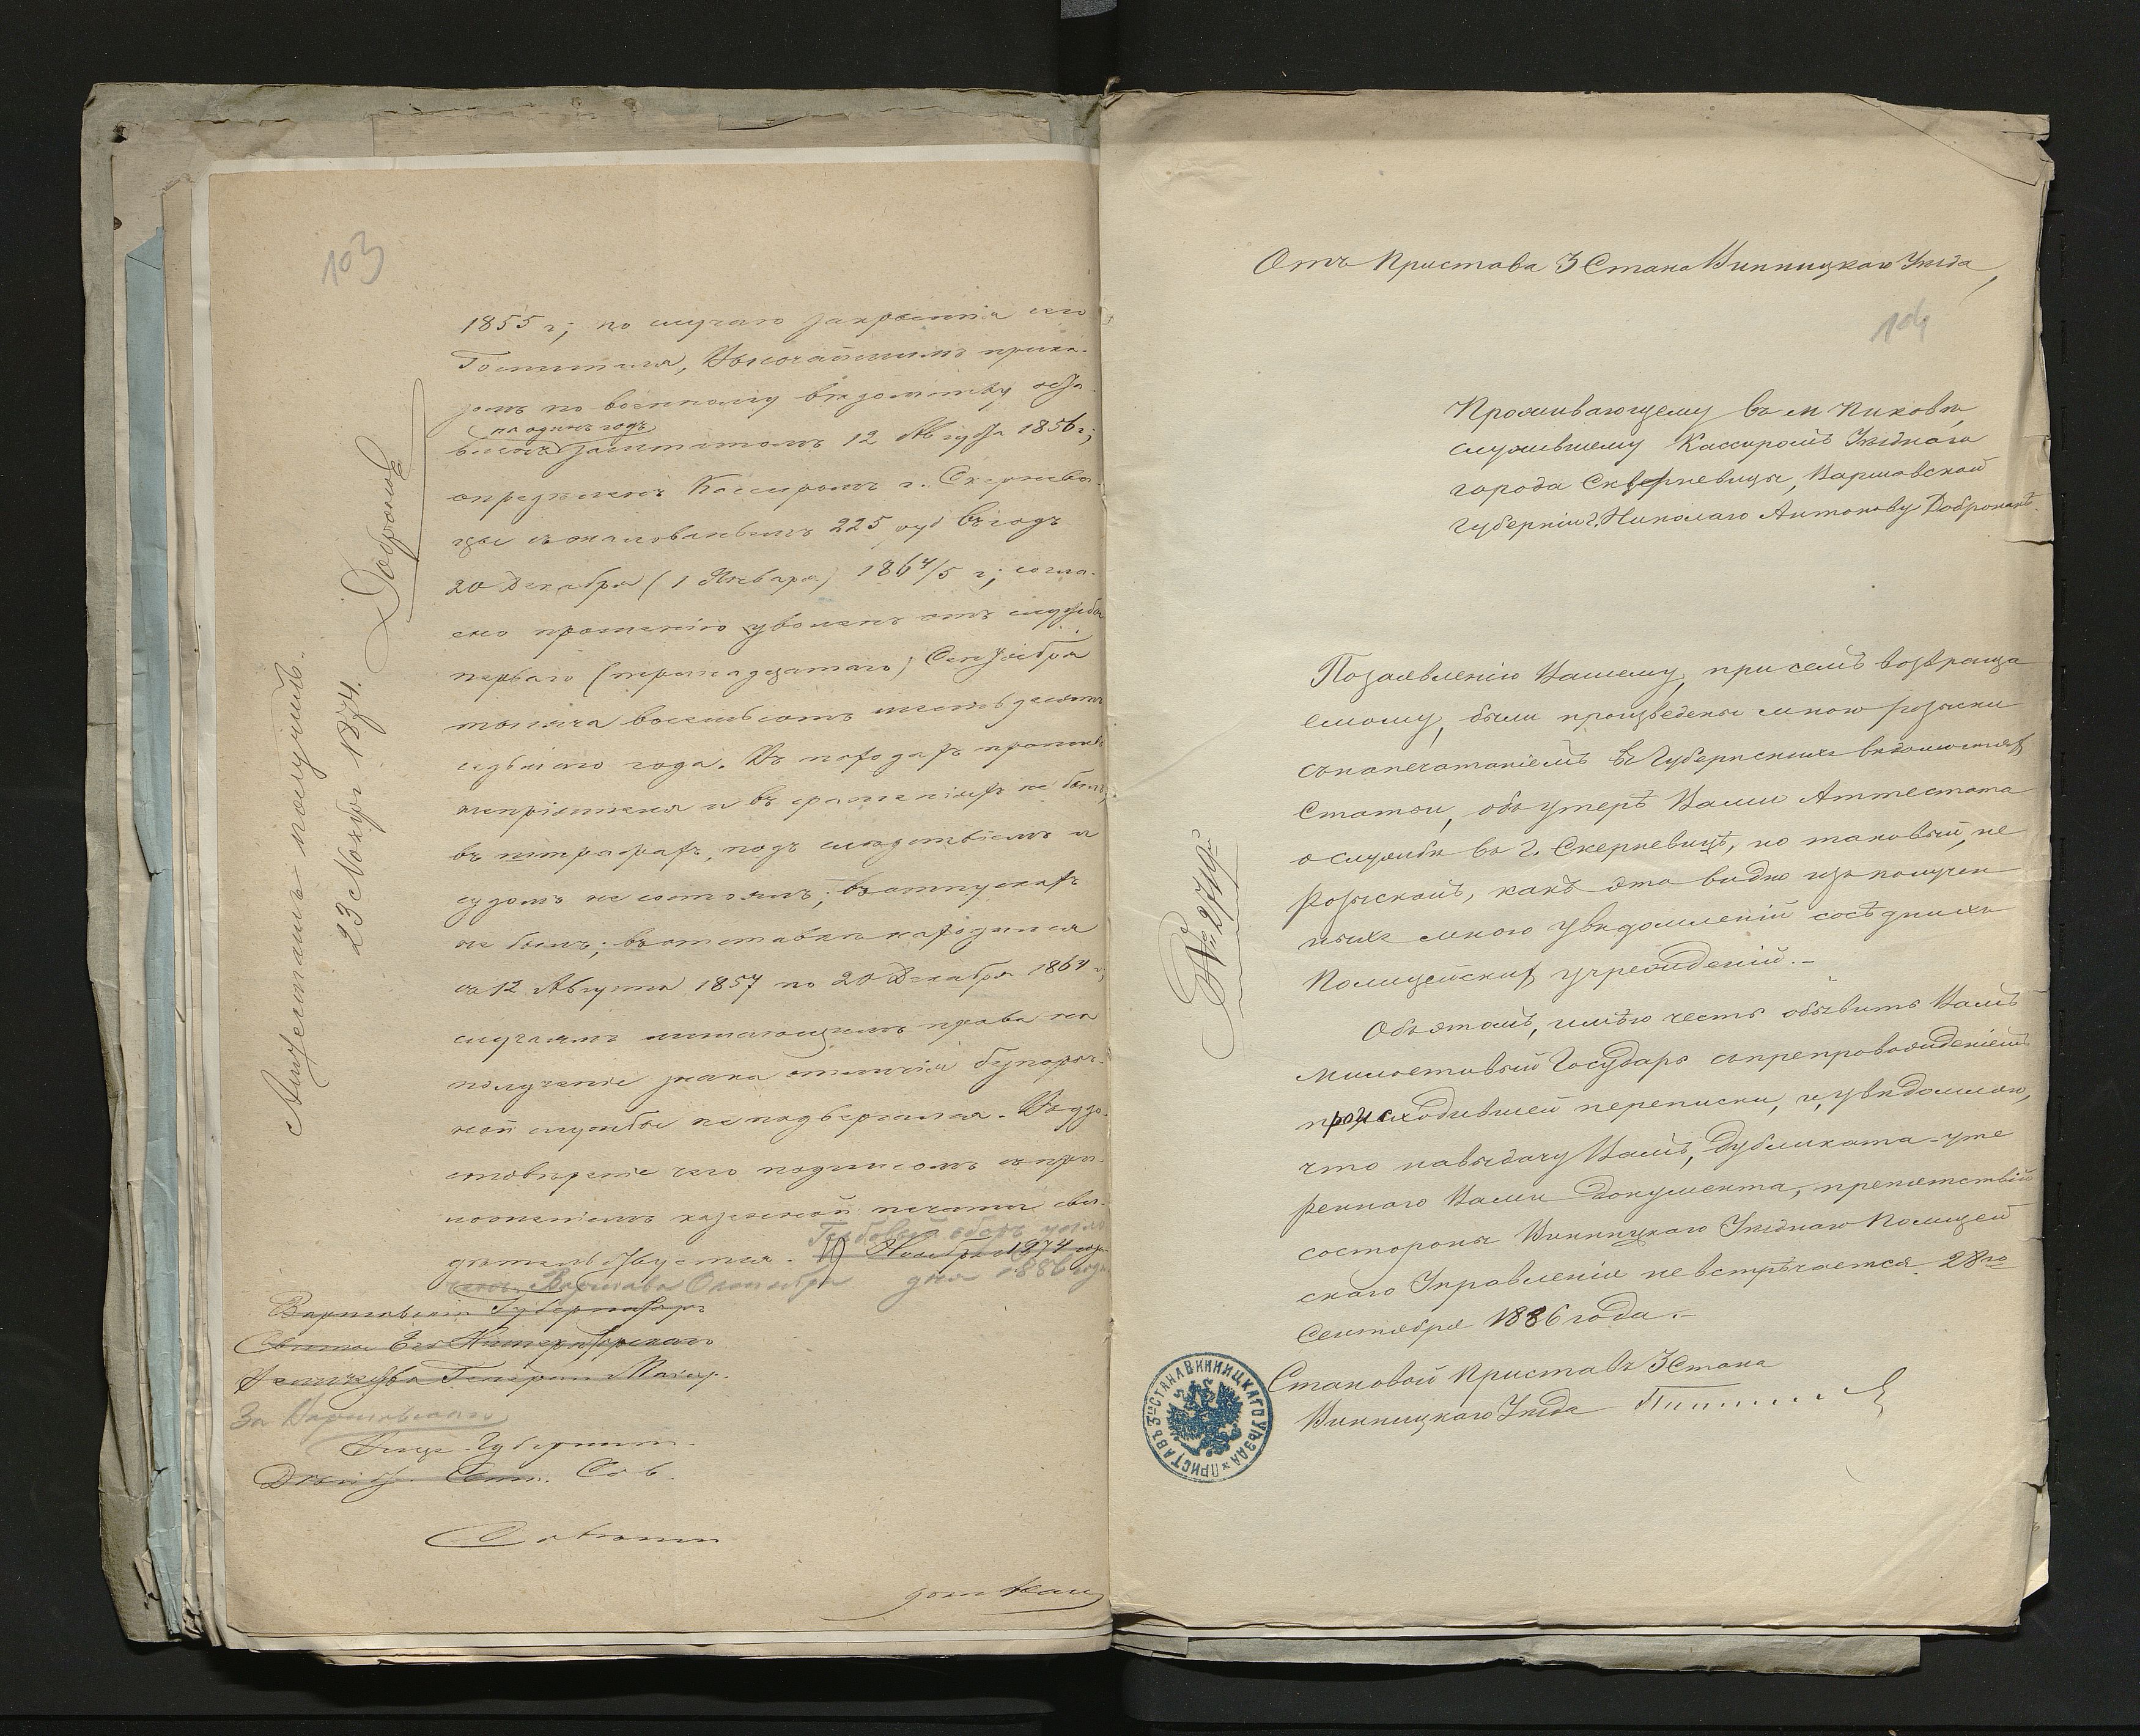 103
1855 г; по случаю закрытія сего
Госпиталя, Высочайшимъ прика-
зомъ по военному вѣдомству оста-
на одинъ годъ
вленъ заштатомъ 12 Августа 1856 г;
опредѣленъ Кассиромъ г. Скернева-
цы съ жалованьемъ 225 руб въ годъ
20 Декабря (1 Января) 1864/5 г; согла-
сно прошенію уволенъ отъ службы
перваго (тринадцатаго) Сентября
тысяча восемьсотъ шестьдесятъ
седьмаго года. Въ походахъ противъ
непріятеля и въ сраженіяхъ не былъ,
въ штрафахъ, подъ слѣдствіемъ и
судомъ не состоялъ; въ отпускахъ
не былъ; въ отставкѣ находился
съ 12 Августа 1857 по 20 Декабря 1864 г;
случаямъ лишающимъ права на
полученіе знака отличія безпороч-
ной службы не подвергался. Въ удо-
стовѣреніе чего подписомъ съ при-
ложеніемъ казенной печати сви-
дѣтельствуется. Ноября 1874 года
Варшава Октября дня 1886 года
Варшавскій Губернаторъ
Свиты Его Императорскаго
Величества Генералъ Маіоръ.
За Варшавскаго
Вице-Губернат.
Дѣйст. Стат. Сов.
Аттестатъ получилъ
23 Ноября 1874.
104
Отъ Пристава 3 Стана Винницкаго Уѣзда,
Проживающему въ м Пиковѣ,
служившему Кассиромъ Уѣзднаго
города Скерневицы, Варшавской
губерніи г. Николаю Антонову
№ 2719
По заявленію Вашему, при семъ возвраща
емому, были произведены мною розыски
съ напечатаніемъ въ Губернскихъ вѣдомостяхъ
Статьи, объ утерѣ Вами Аттестата
о службѣ въ г. Скерневицѣ, но таковый, не
розысканъ, какъ это видно изъ получен
ныхъ мною увѣдомленій сосѣднихъ
Полицейскихъ учрежденій.-
Объ этомъ, имѣю честь объявить Вамъ
Милостивый Государь съ препровожденіемъ
происходившей переписки, и, увѣдомляю,
что на выдачу Вамъ, Дубликата-уте
реннаго Вами документа, препятствій
со стороны Винницкаго Уѣзднаго Полицей
скаго Управленія не встрѣчается. 28го
Сентября 1886 года.-
Становой Приставъ 3 Стана
Винницкаго Уѣзда
ПРИСТАВЪ 3го СТАНА ВИННИЦКАГО УѢЗДА